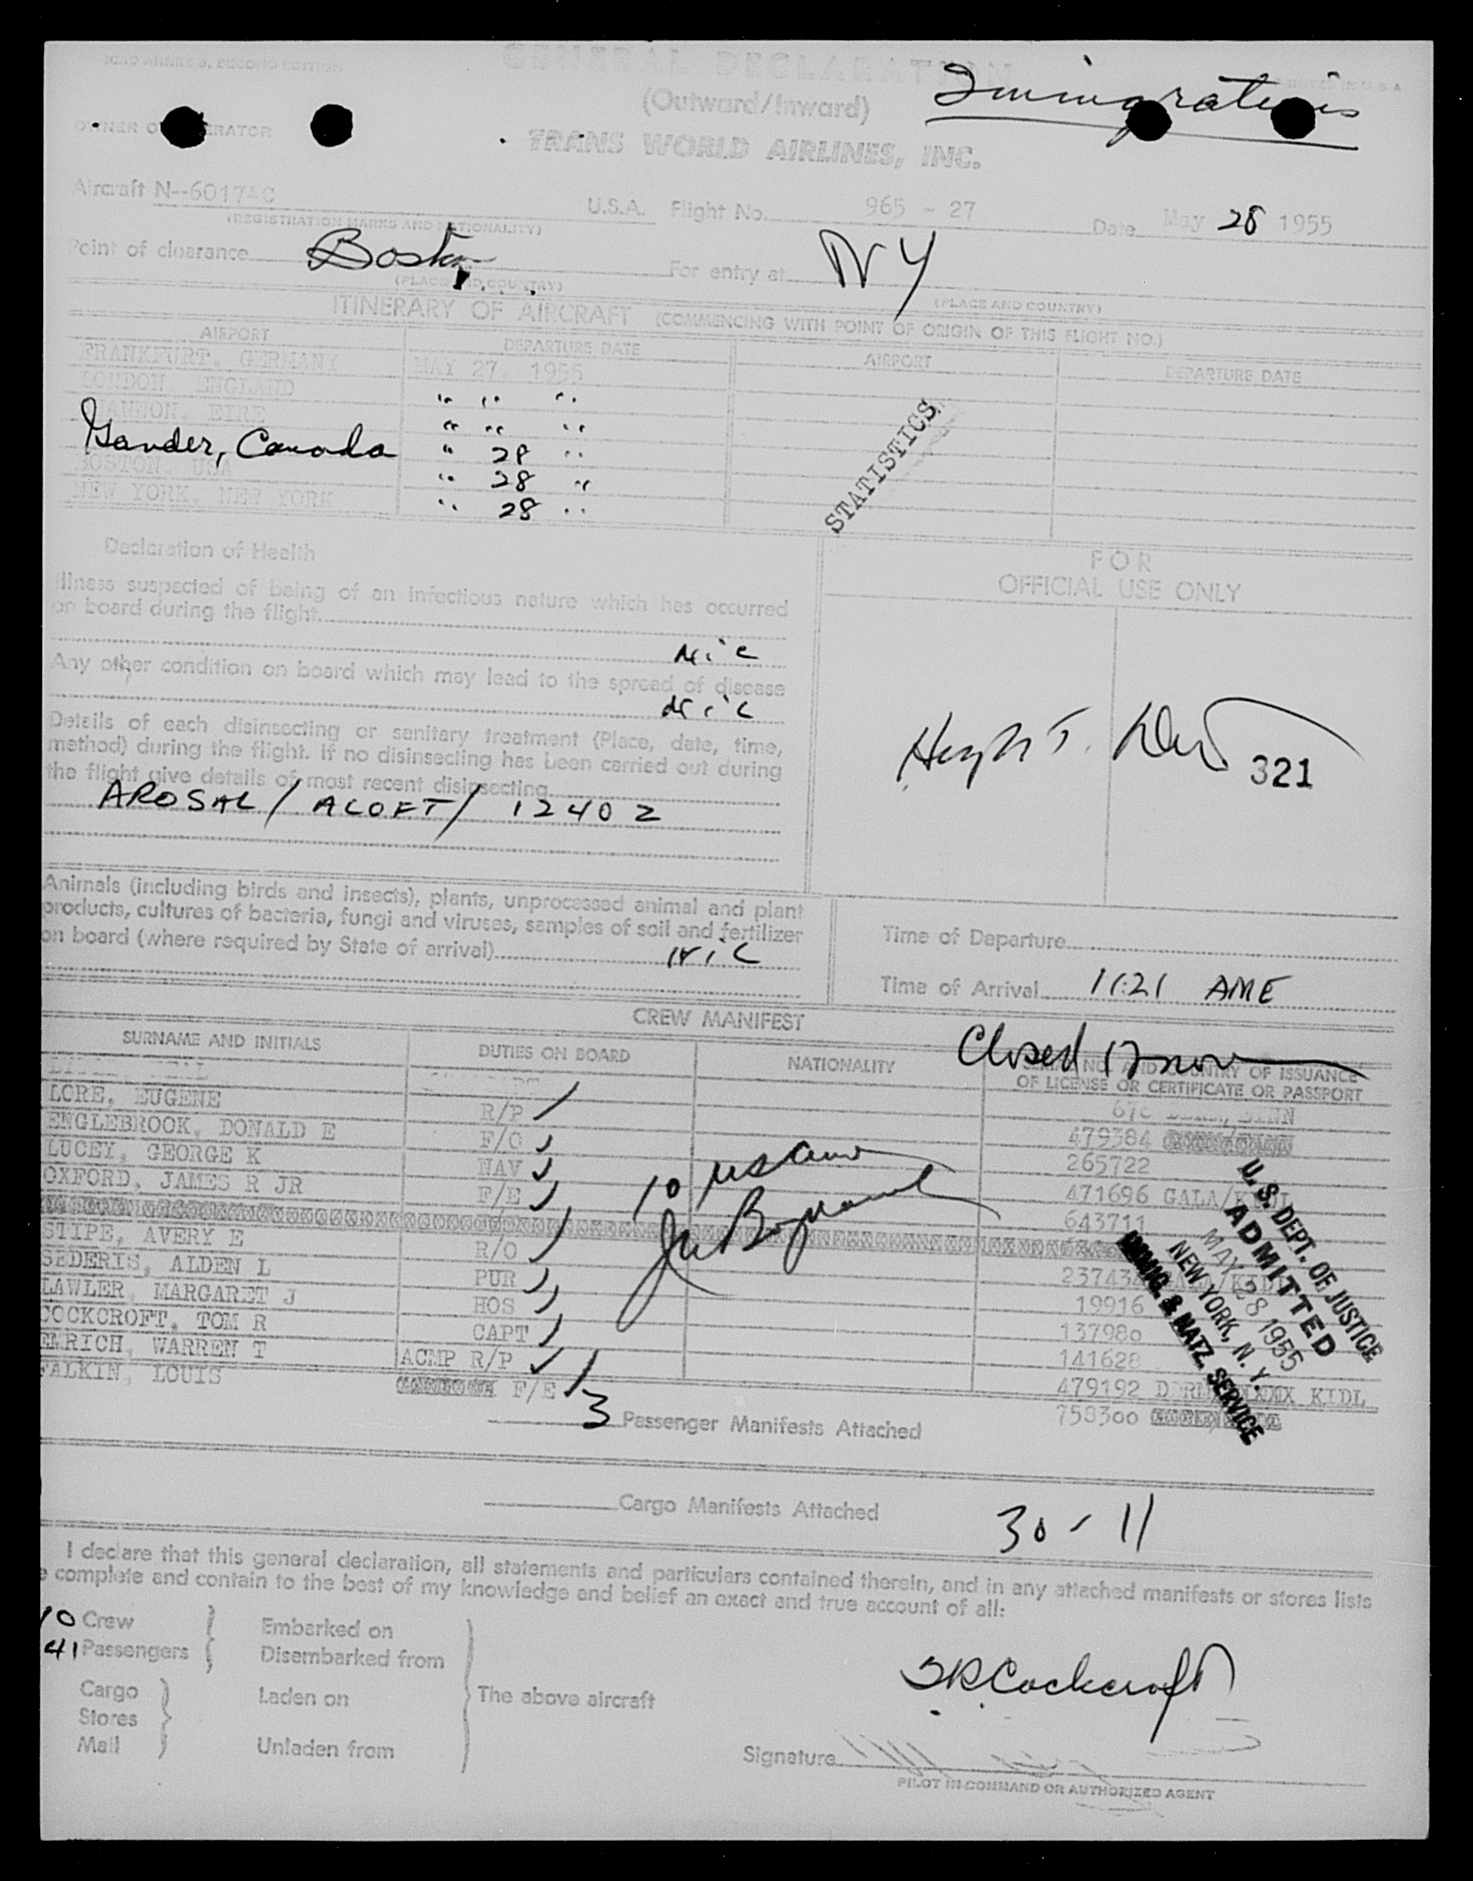 ICAO ANNEX 9, SECOND EDITION
GENERAL DECLARATION
Immigration
(Outward/Inward)
OWNER OR OPERATOR
TRANS WORLD AIRLINES, INC.
Aircraft N--6017-C U.S.A. Flight No. 965 - 27 Date May 28 1955
(REGISTRATION MARKS AND NATIONALITY)
Point of clearance Boston For entry at NY
(PLACE AND COUNTRY) (PLACE AND COUNTRY)
ITINERARY OF AIRCRAFT (COMMENCING WITH POINT OF ORIGIN OF THIS FLIGHT NO.)
AIRPORT DEPARTURE DATE AIRPORT DEPARTURE DATE
FRANKFURT, GERMANY MAY 27, 1955
LONDON, ENGLAND " " "
SHANNON, EIRE " " "
Gander, Canada " 28 "
BOSTON, USA " 28 "
NEW YORK, NEW YORK " 28 "
STATISTICS
Declaration of Health
Illness suspected of being of an infectious nature which has occurred
on board during the flight
Nil
Any other condition on board which may lead to the spread of disease
Nil
Details of each disinsecting or sanitary treatment (Place, date, time,
method) during the flight. If no disinsecting has been carried out during
the flight give details of most recent disinsecting
AROSAL / ALOFT / 1240 Z
FOR
OFFICIAL USE ONLY
Hugh T.
321
Animals (including birds and insects), plants, unprocessed animal and plant
products, cultures of bacteria, fungi and viruses, samples of soil and fertilizer
on board (where required by State of arrival) Nil
Time of Departure
Time of Arrival 11:21 AME
CREW MANIFEST
Closed
SURNAME AND INITIALS DUTIES ON BOARD NATIONALITY SERIAL NO. AND COUNTRY OF ISSUANCE
OF LICENSE OR CERTIFICATE OR PASSPORT
LORE, EUGENE R/P
ENGLEBROOK, DONALD E F/O 479384
LUCEY, GEORGE K NAV 265722
OXFORD, JAMES R JR F/E 471696 GALA/KIDL
643711
STIPE, AVERY E R/O
SEDERIS, ALDEN L PUR 237434
LAWLER, MARGARET J HOS 19916
COCKCROFT, TOM R CAPT 137980
EMRICH, WARREN T ACMP R/P 141628
FALKIN, LOUIS F/E 479192 KIDL
758300
10
U. S. DEPT. OF JUSTICE
ADMITTED
MAY 28 1955
NEW YORK, N. Y.
IMMIG. & NATZ. SERVICE
3 Passenger Manifests Attached
Cargo Manifests Attached
30 - 11
I declare that this general declaration, all statements and particulars contained therein, and in any attached manifests or stores lists
e complete and contain to the best of my knowledge and belief an exact and true account of all:
10 Crew Embarked on
41 Passengers Disembarked from
Cargo Laden on The above aircraft
Stores
Mail Unladen from
TR Cockcroft
Signature
PILOT IN COMMAND OR AUTHORIZED AGENT